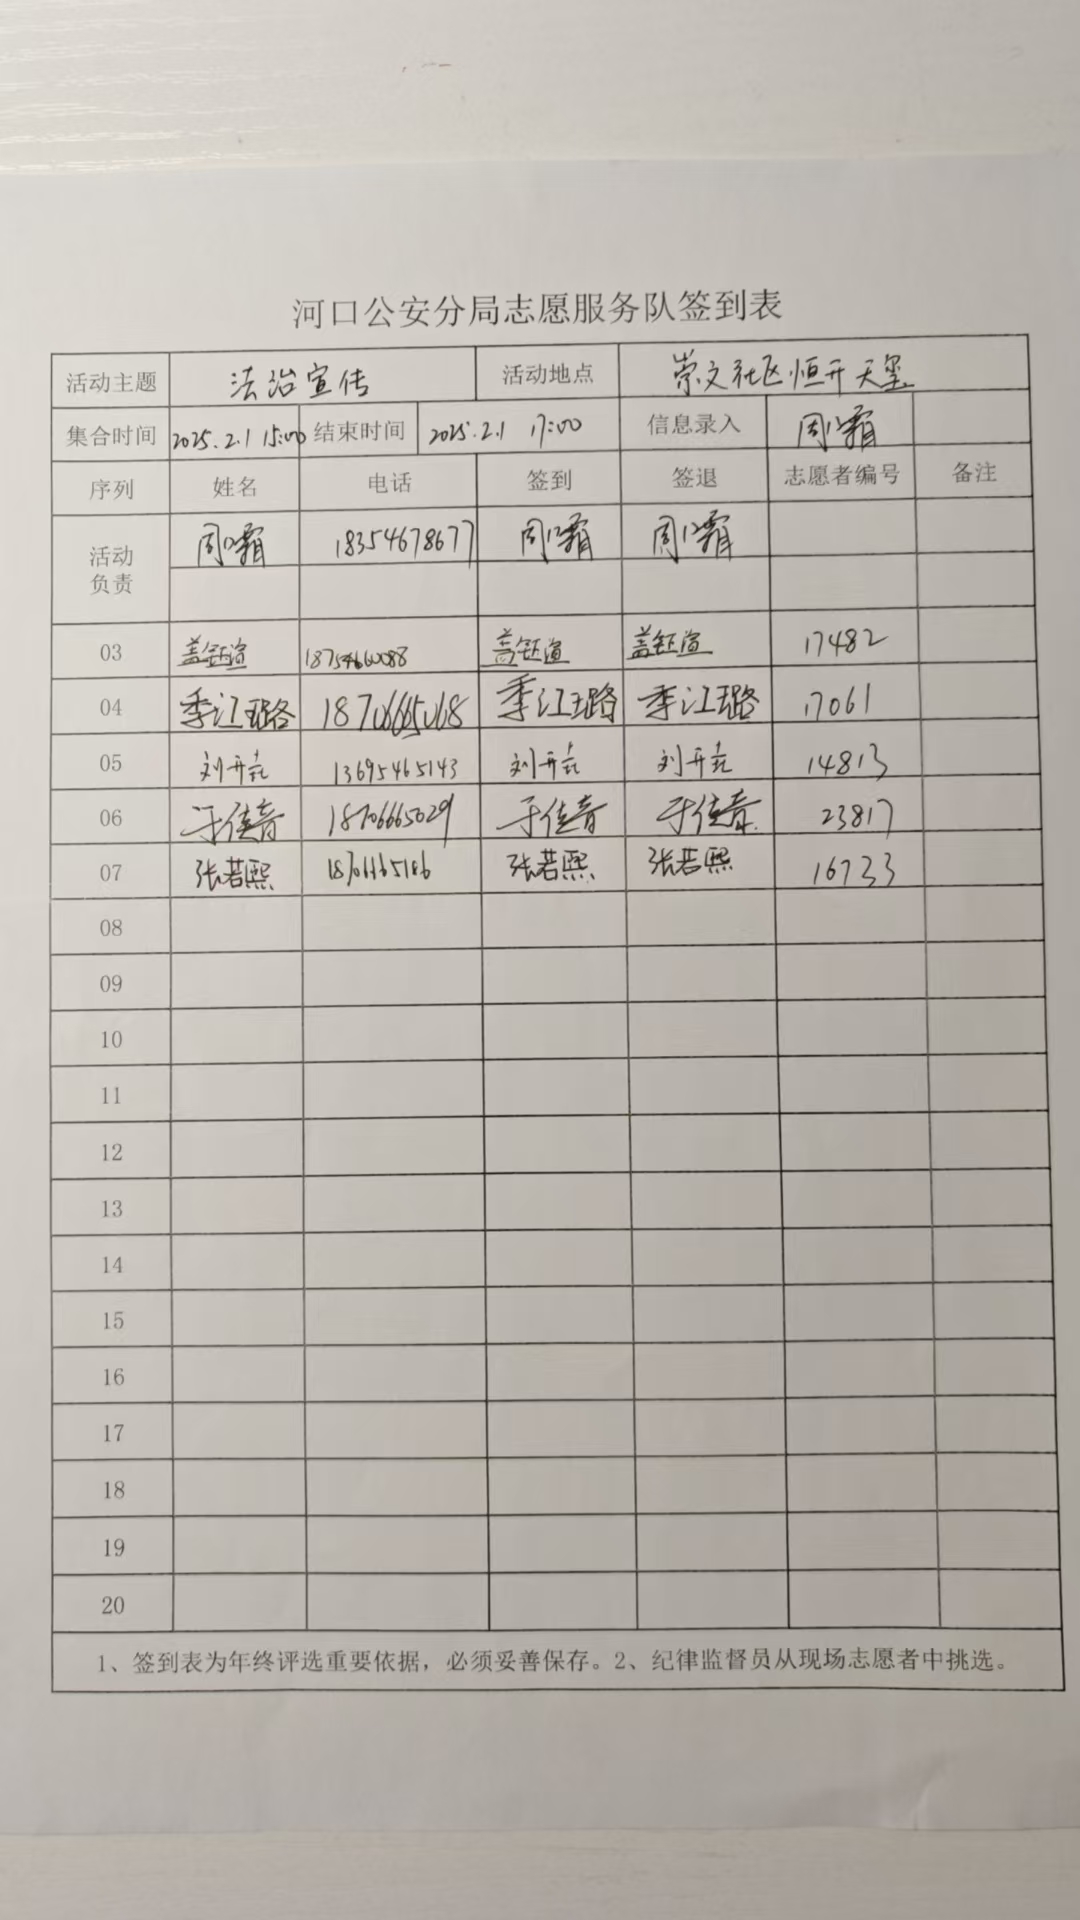 河口公安分局志愿服务队签到表
活动主题 法治宣传 活动地点 崇文社区恒开天玺
集合时间 2025.2.1 15:00 结束时间 2025.2.1 17:00 信息录入 周霸
序列 姓名 电话 签到 签退 志愿者编号 备注
活动负责 周霸 18354678677 周霸 周霸
03 盖钰渲 18754660088 盖钰渲 盖钰渲 17482
04 季江璐 季江璐 季江璐 17061
05 刘开 13695465143 刘开 刘开 14813
06 于佳音 18706665029 于佳音 于佳音 23817
07 张若熙 张若熙 张若熙 16733
08
09
10
11
12
13
14
15
16
17
18
19
20
1、签到表为年终评选重要依据，必须妥善保存。2、纪律监督员从现场志愿者中挑选。